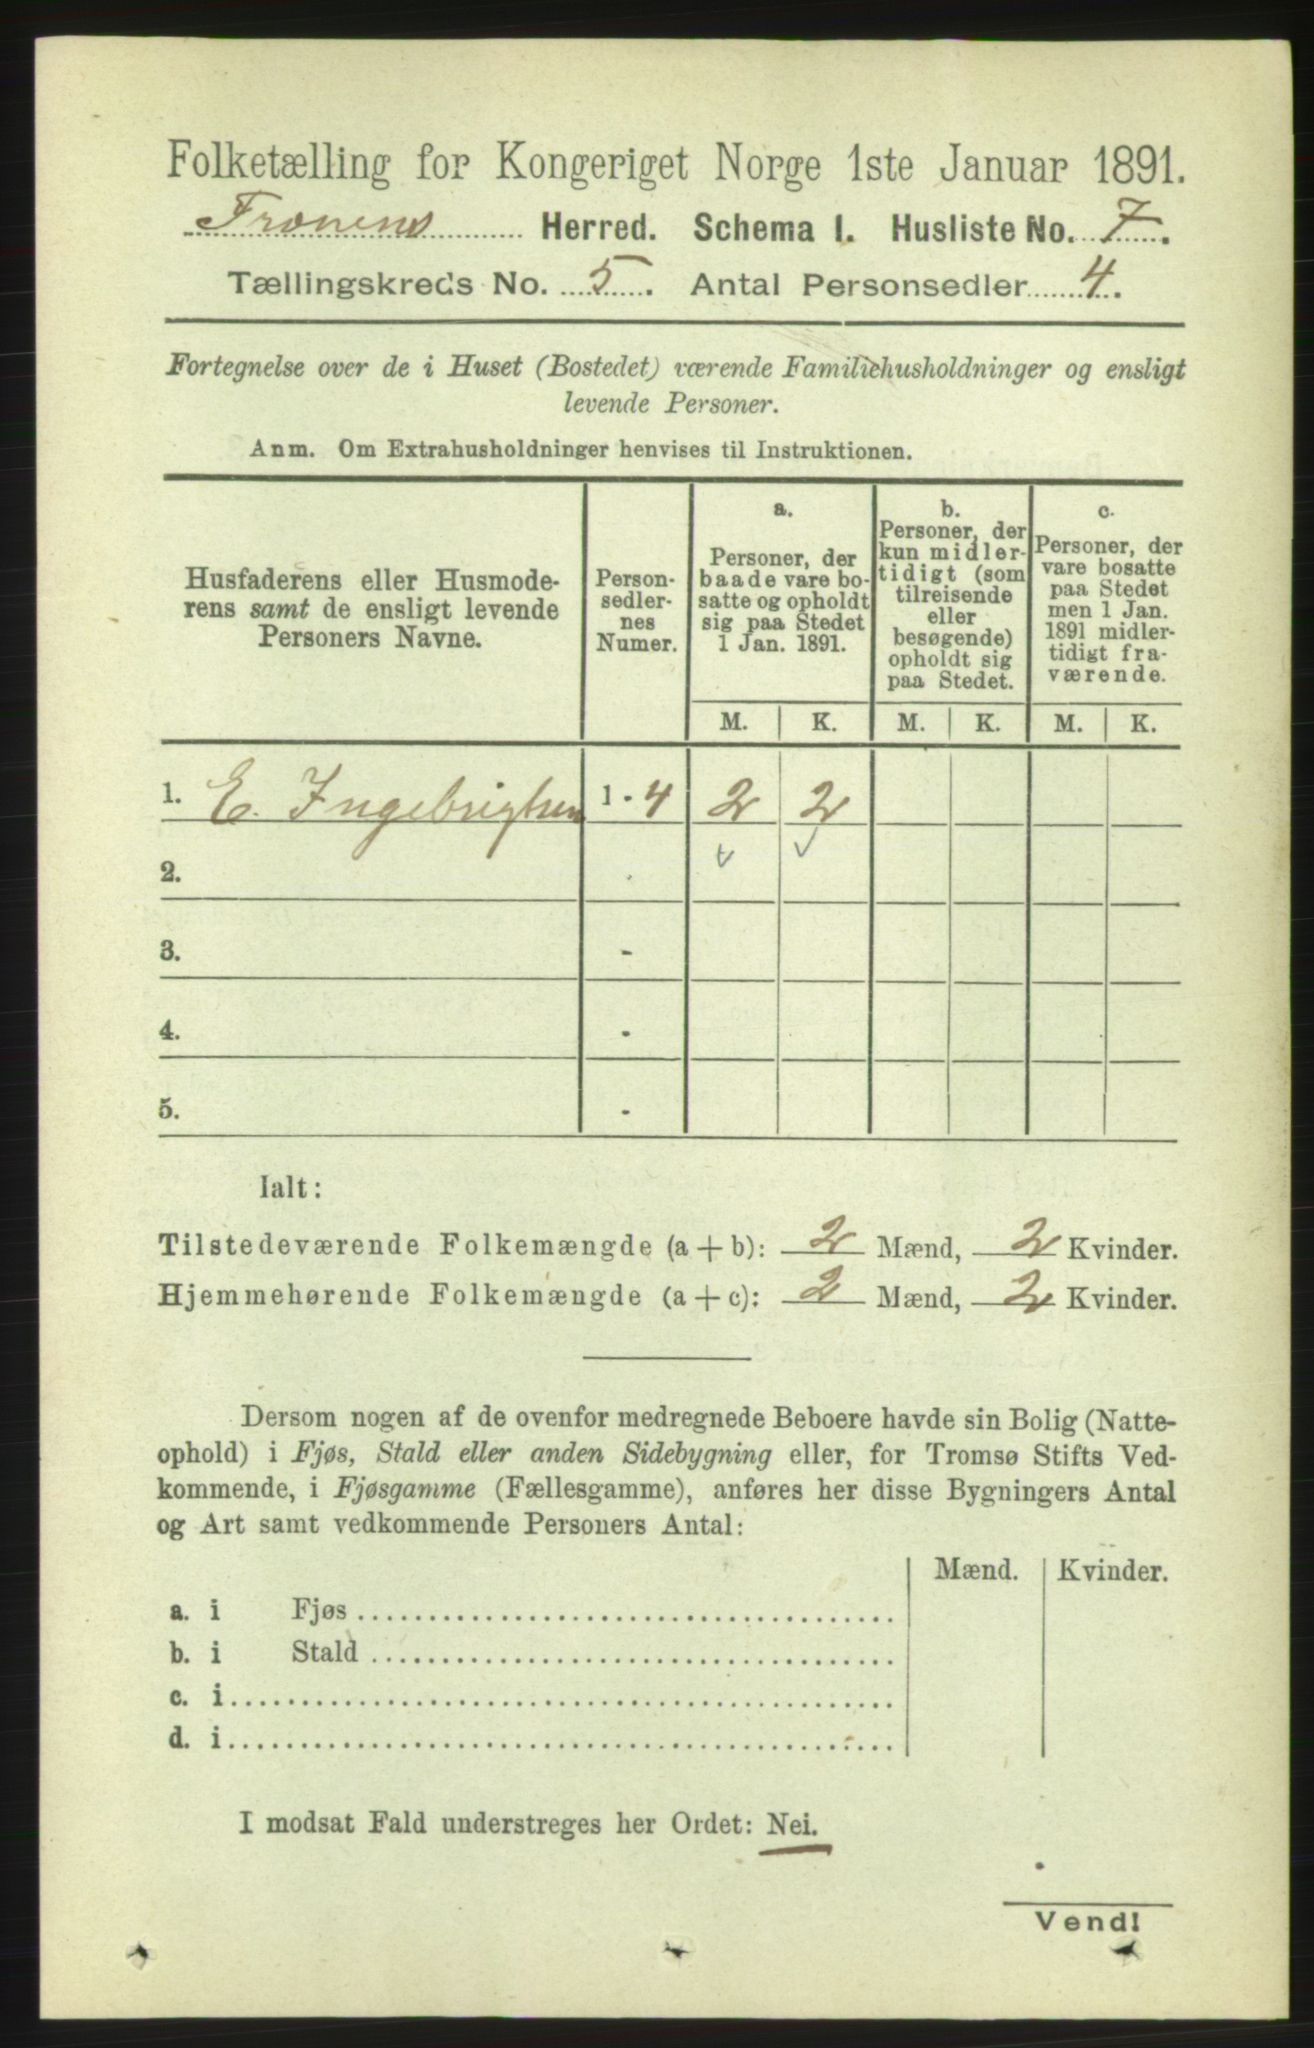 Folketælling for Kongeriget Norge 1ste Januar 1891.
Herred. Schema I. Husliste No. 7.
Tællingskreds No. 5. Antal Personsedler 4.
Fortegnelse over de i Huset (Bostedet) værende Familiehusholdninger og ensligt
levende Personer.
Anm. Om Extrahusholdninger henvises til Instruktionen.
Husfaderens eller Husmode-
rens samt de ensligt levende
Personers Navne.
Person-
sedler-
nes
Numer.
a.
Personer, der
baade vare bo-
satte og opholdt
sig paa Stedet
1 Jan. 1891.
b.
Personer, der
kun midler-
tidigt (som
tilreisende
eller
besøgende)
opholdt sig
paa Stedet.
c.
Personer, der
vare bosatte
paa Stedet
men 1 Jan.
1891 midler-
tidigt fra-
værende.
M. K. M. K. M. K.
1. E. Ingebrigtsen 1 - 4 2 2
2.
3. -
4. -
5. -
Ialt:
Tilstedeværende Folkemængde (a + b): 2 Mænd, 2 Kvinder.
Hjemmehørende Folkemængde (a + c): 2 Mænd, 2 Kvinder.
Dersom nogen af de ovenfor medregnede Beboere havde sin Bolig (Natte-
ophold) i Fjøs, Stald eller anden Sidebygning eller, for Tromsø Stifts Ved-
kommende, i Fjøsgamme (Fællesgamme), anføres her disse Bygningers Antal
og Art samt vedkommende Personers Antal:
Mænd. Kvinder.
a. i Fjøs
b. i Stald
c. i
d. i
I modsat Fald understreges her Ordet: Nei.
Vend!